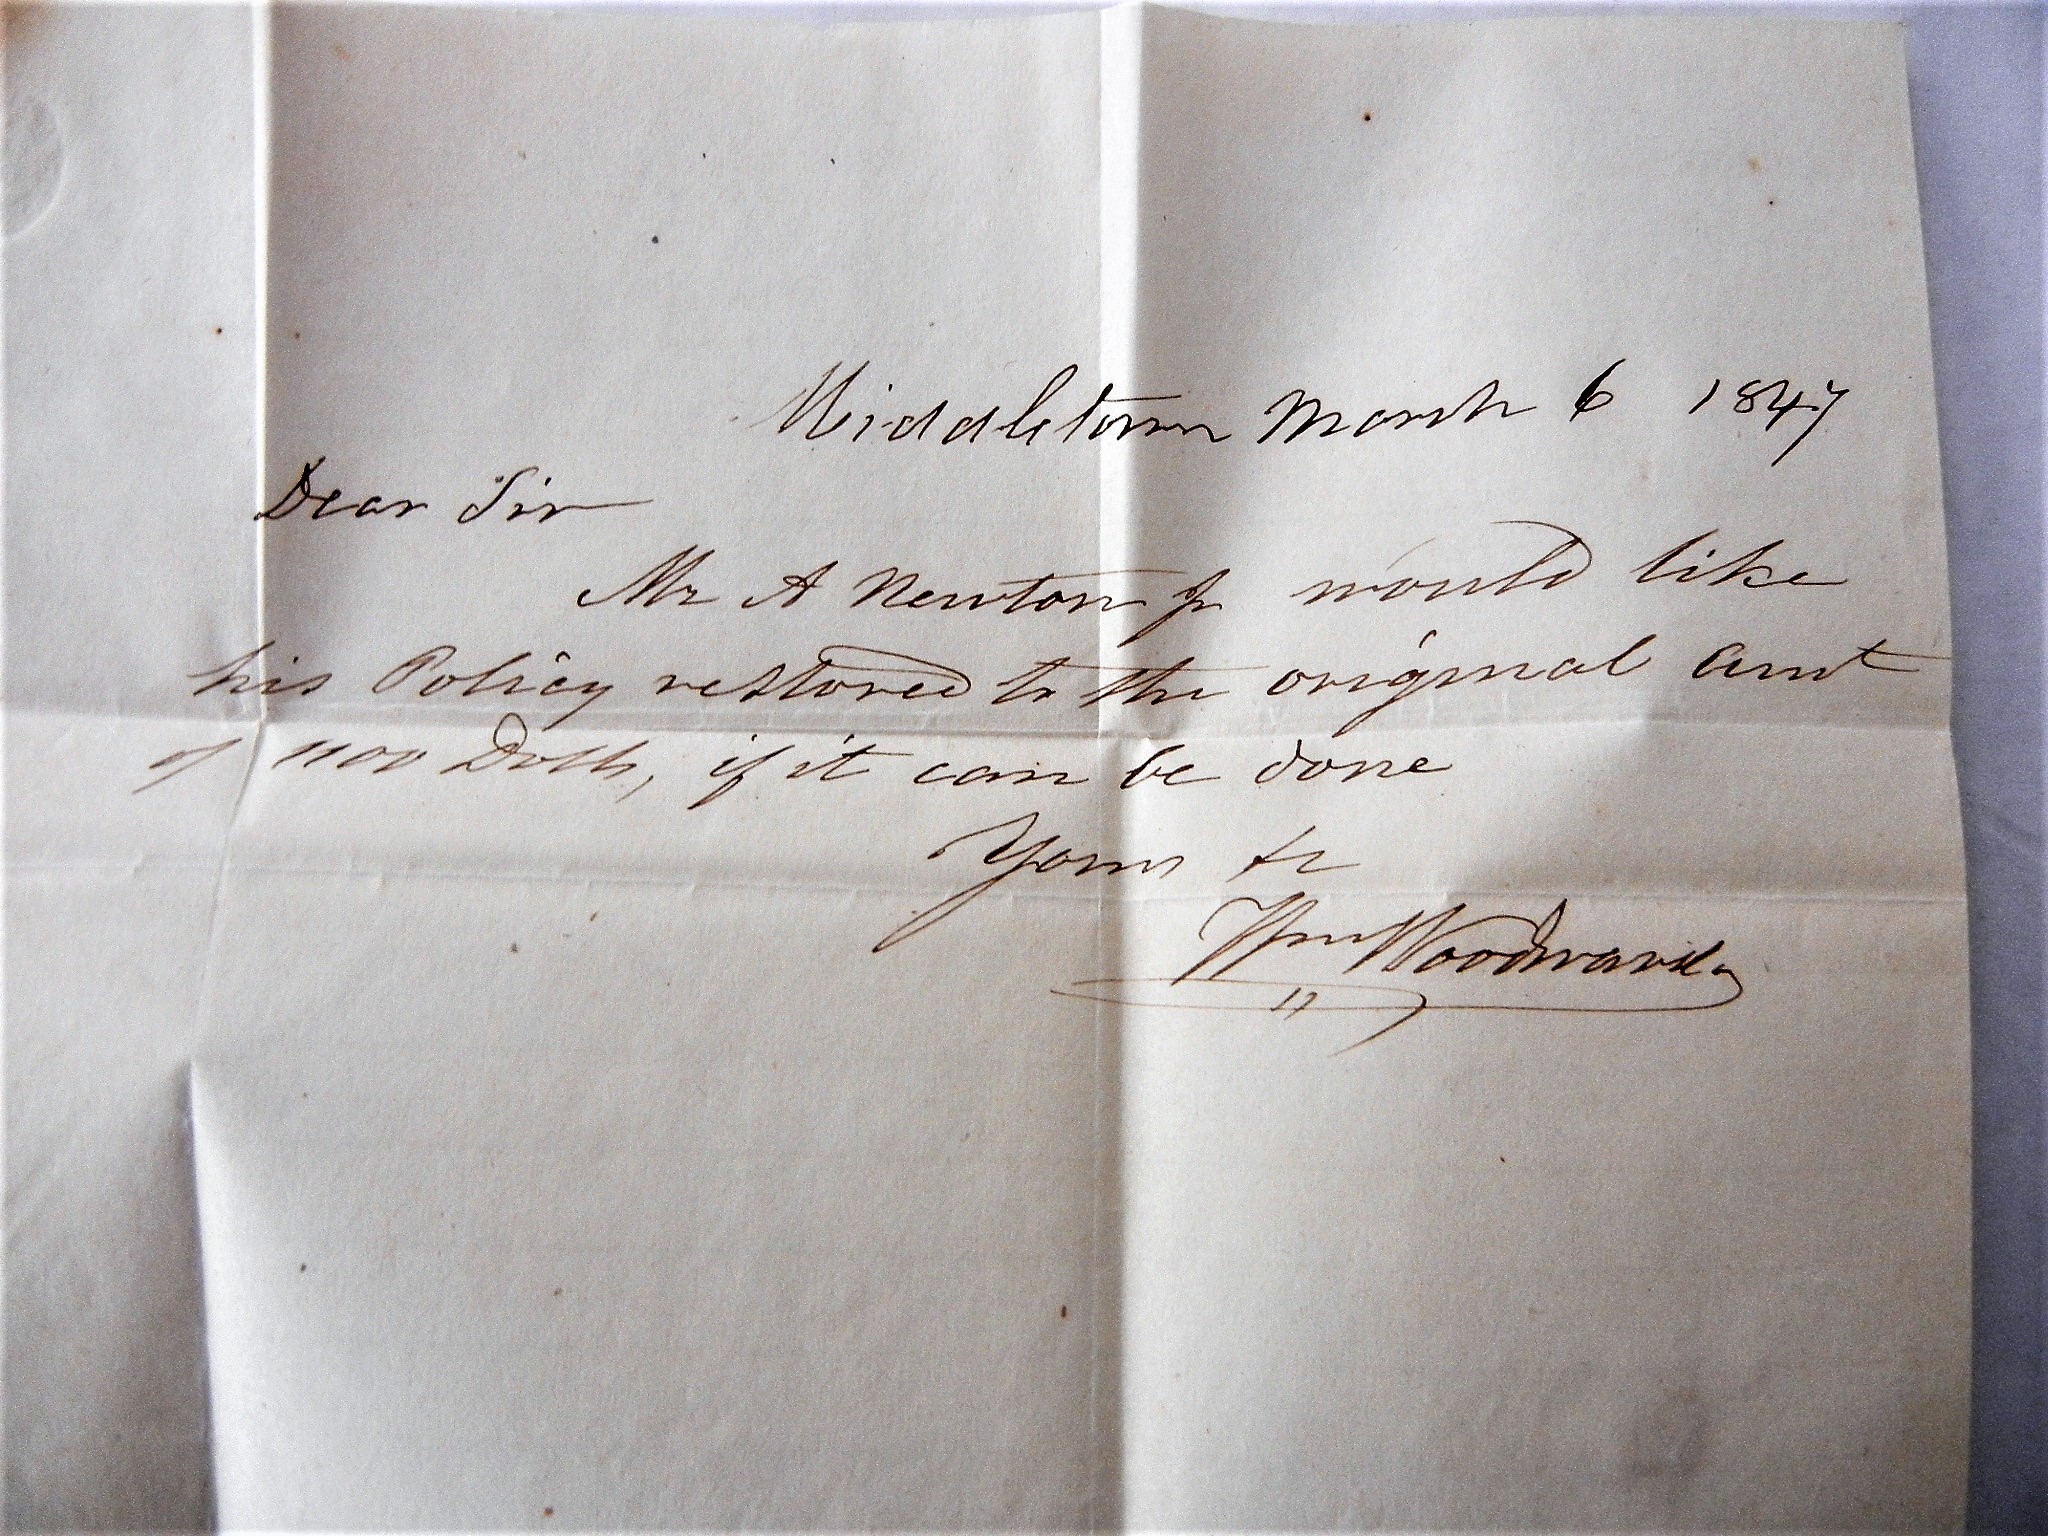 Middletown March 6 1847
Dear Sir
Mr A Newton Jr would like
his Policy restored to the original amt
of 1100 Dolls, if it can be done
Yours &c
Wm Woodward